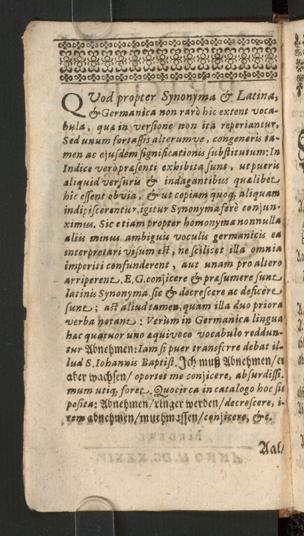 QUod propter Synonyma & Latina,
& Germanica non rarò hic extent voca-
bula, qua in versione non ità reperiantur,
Sed unum fortassis alterumve, congeneris ta-
men ac ejusdem significationis substituitur: In
Indice verò præsenti exhibita sunt, ut pueris
aliquid versuris & indagantibus quælibet
hic essent obvia, & ut copiam quoq; aliquam
indipiscerentur, igitur Synonyma ferè conjun-
ximus. Sic etiam propter homonyma nonnulla
aliis minus ambiguis voculis germanicis ea
interpretari visum est, ne scilicet illa omnia
imperiti confunderent, aut unam pro altero
arriperent. E.G. conjicere & præsumere sunt
latinis Synonyma, sic & decrescere ac deficere
sunt; ast aliud tamen, quàm illa duo priora
verba notant: Verùm in Germanica lingua
hac quatuor uno æquivoco vocabulo reddun-
tur Abnehmen: Jam si puer transferre debat il-
lud S. Iohannis Baptist. Ich muß Abnehmen/ er
aber wachsen/ oportet me conjicere, absurdissi-
mum utiq; foret. Quocirca in catalogo hoc sic
posita: Abnehmen/ ringer werden/ decrescere, i-
tem abnehmen/ muthmassen/ conjicere, &c.
Aal/